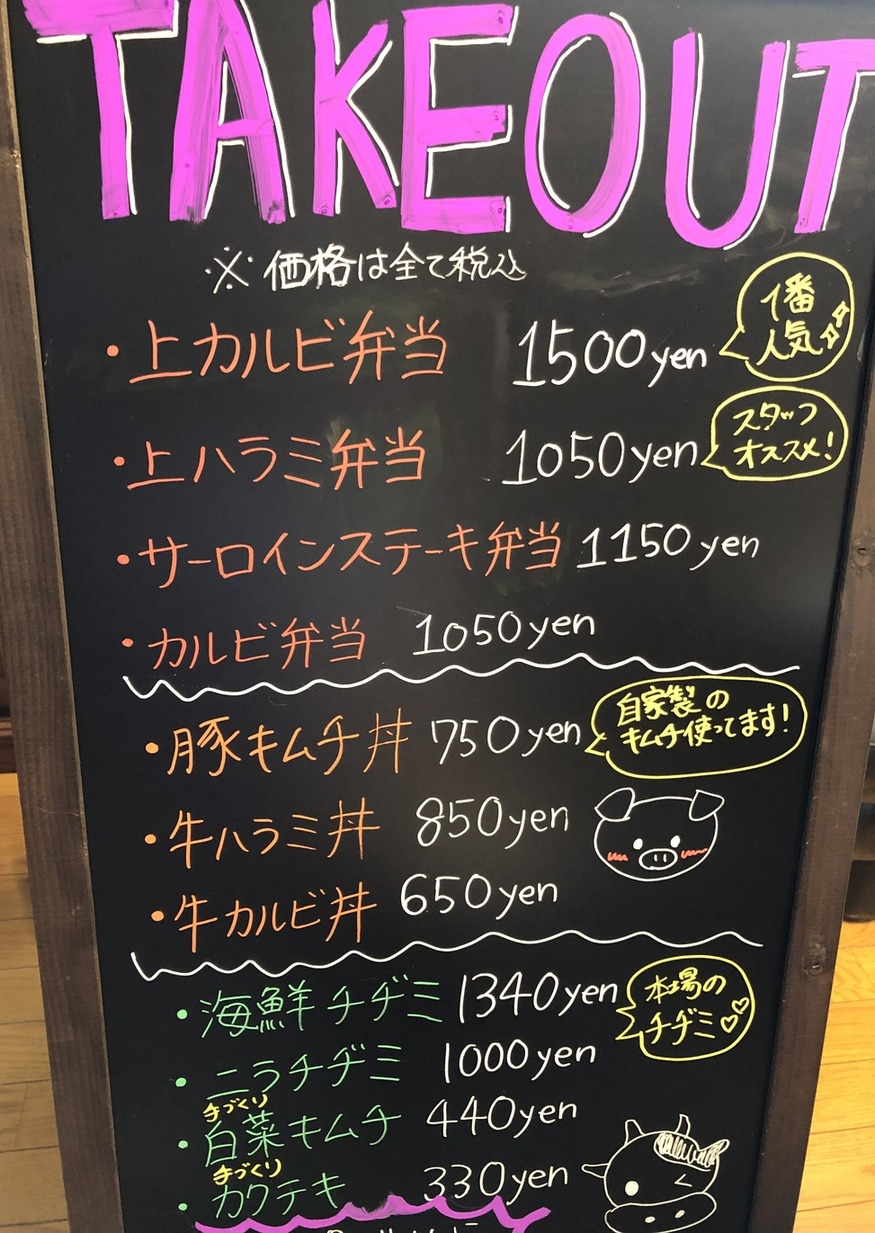 TAKEOUT
※ 価格は全て税込
・上カルビ弁当 1500yen
1番
人気
・上ハラミ弁当 1050yen
スタッフ
オススメ!
・サーロインステーキ弁当 1150yen
・カルビ弁当 1050yen
・豚キムチ丼 750yen
自家製の
キムチ使ってます!
・牛ハラミ丼 850yen
・牛カルビ丼 650yen
・海鮮チヂミ 1340yen
本場の
チヂミ♡♡
・ニラチヂミ 1000yen
手づくり
・白菜キムチ 440yen
手づくり
・カクテキ 330yen